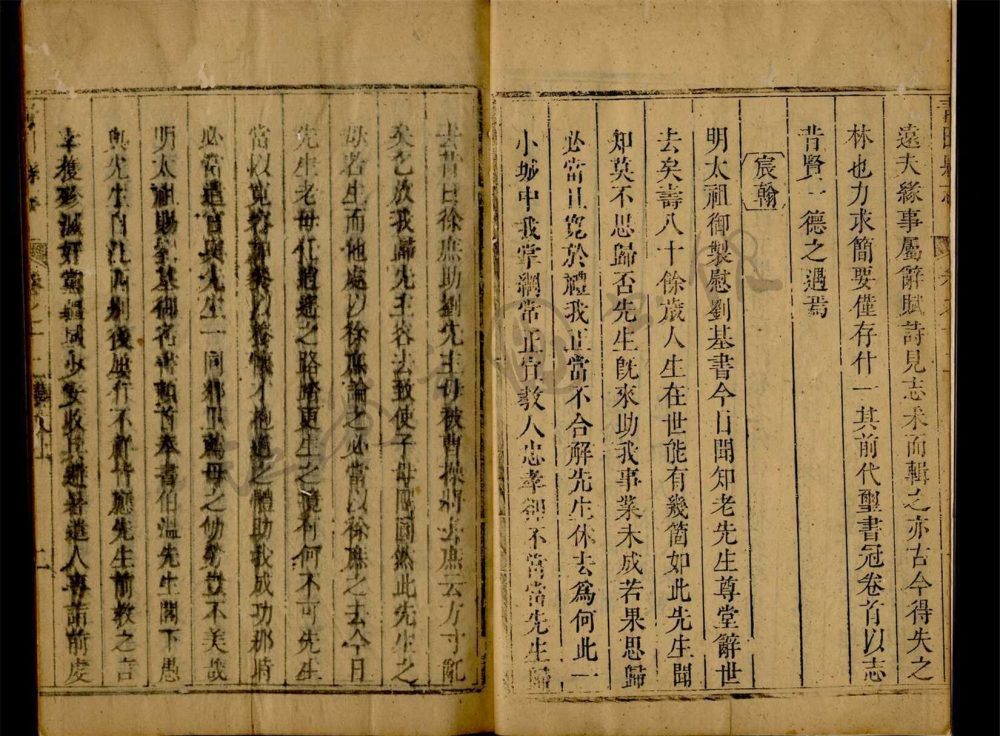 遠夫緣事屬辭賦詩見志采而輯之亦古今得失之
林也力求簡要僅存什一其前代璽書冠卷首以志
昔賢一德之遇焉
宸翰
明太祖御製慰劉基書今日聞知老先生尊堂辭世
去矣壽八十餘歲人生在世能有幾箇如此先生聞
知莫不思歸否先生旣來助我事業未成若果思歸
必當且寬於禮我正當不合解先生休去爲何此一
小城中我掌綱常正宜敎人忠孝卻不當當先生歸
去昔日徐庶助劉先主母被曹操將去庶云方寸亂
矣乞放我歸先主容去致使子母團圓然此先生之
母若生而他處以徐庶論之必當以徐庶之去今日
先生老母任逍遙之路踏更生之境有何不可先生
當以寬容加餐以養懷才抱道之體助我成功那時
必當遣官與先生一同鄉里薦母之劬勞豈不美哉
明太祖賜劉基御名書頓首奉書伯溫先生閣下愚
與先生自江西別後屢行不軒皆應先生前敎之言
幸獲殄滅奸黨疆域少安收兵避暑遣人專請前處